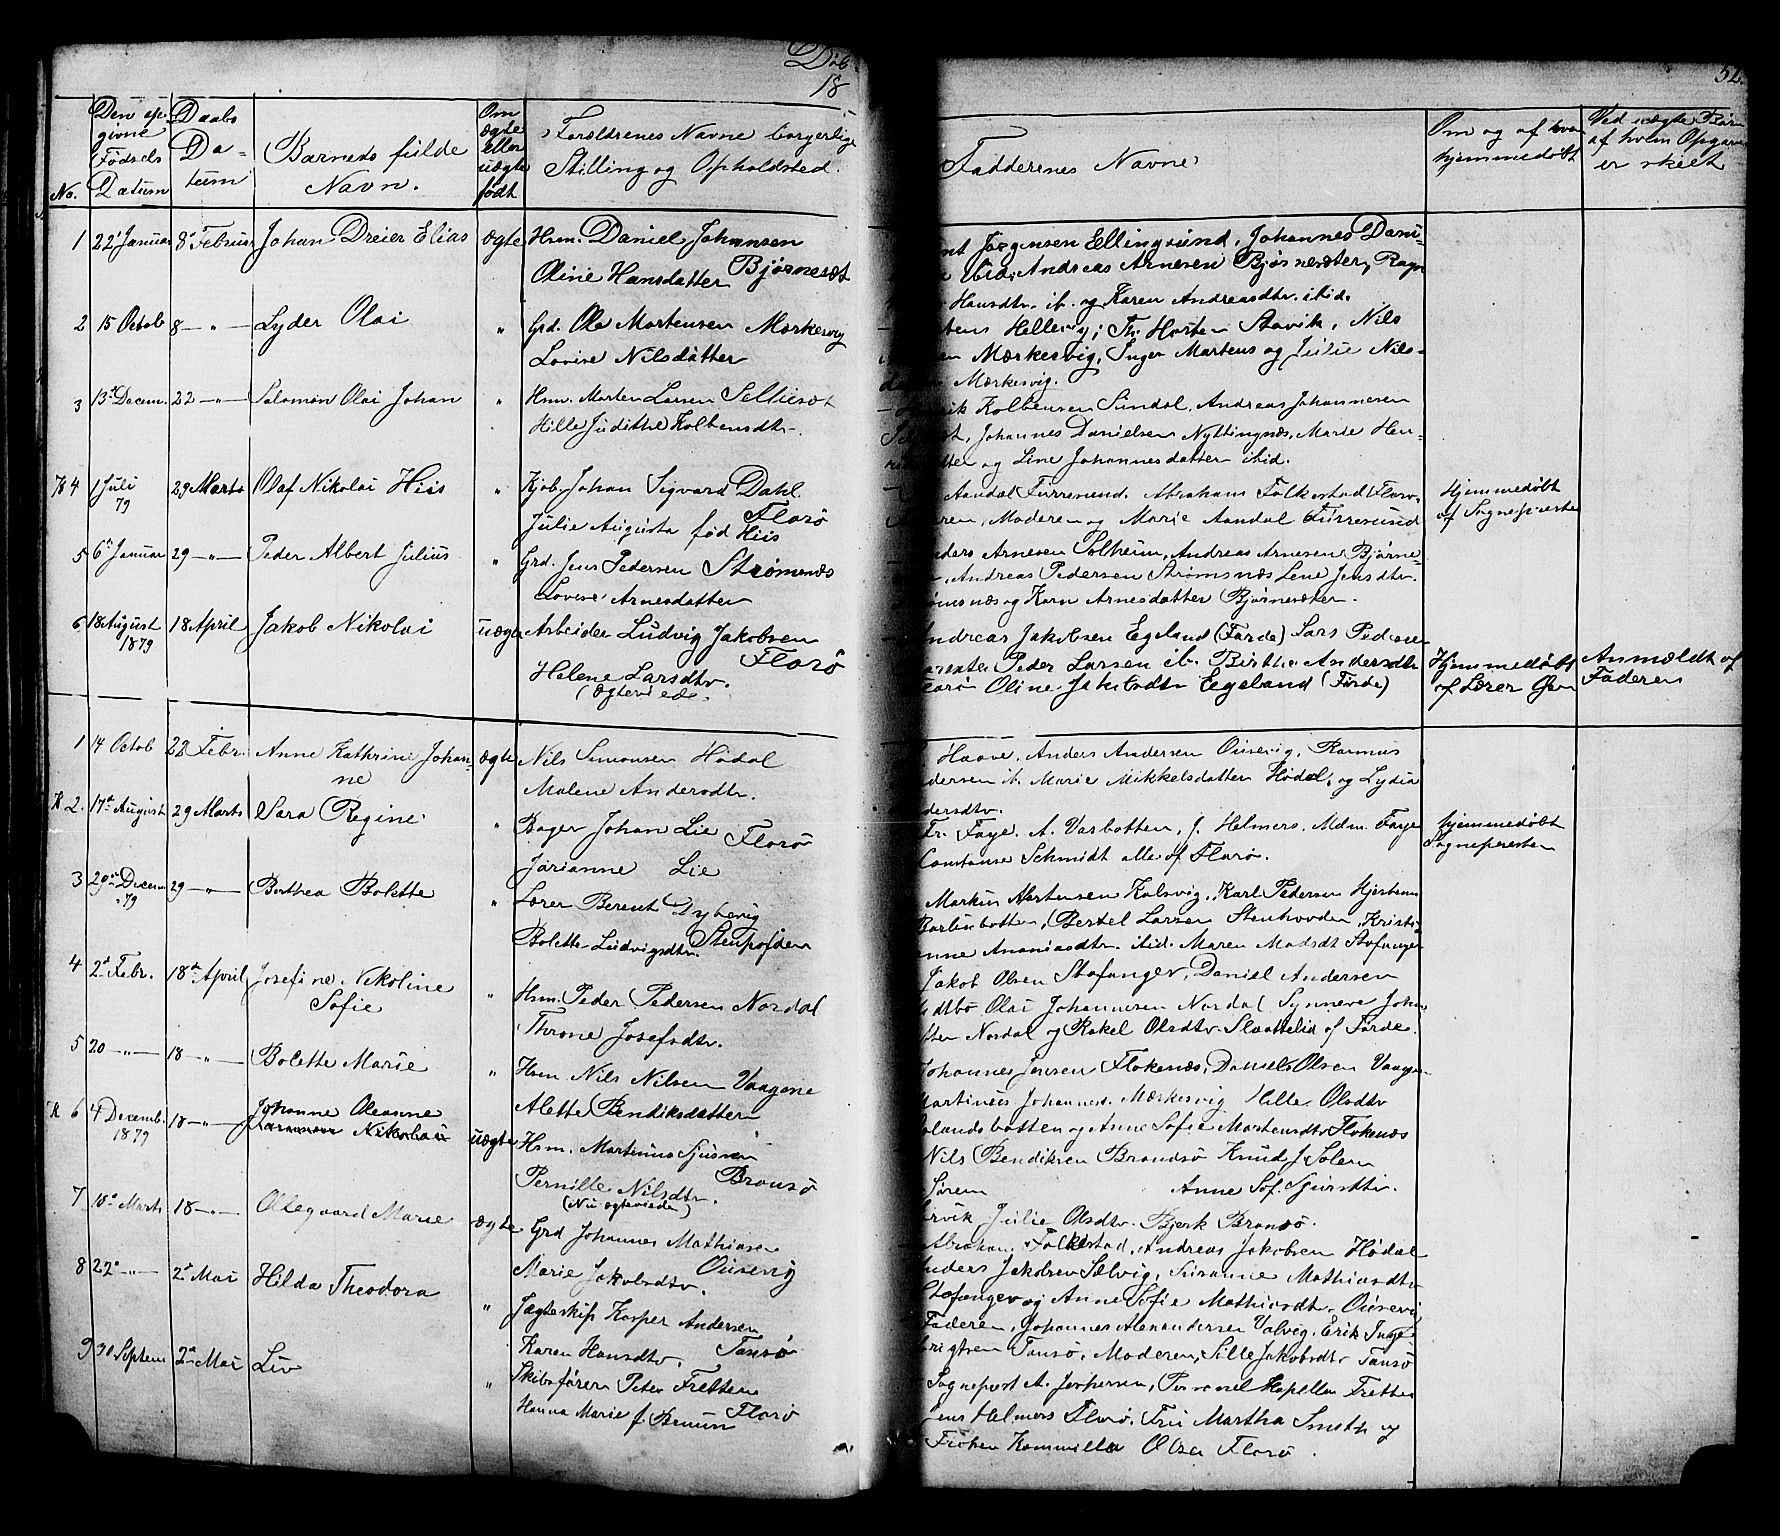 Døb
18
52
No.
Den op-
givne
Fødsels
Datum
Daabs
Da-
tum
Barnets fulde
Navn.
Om
ægte
eller
uægte
født
Forældrenes Navne borgerlige
Stilling og Opholdsted.
Fadderenes Navne
Om og af hvem
hjemmedøbt
Ved uægte Børn
af hvem Opgaven
er skeet
1 22' Januar 8' Februar Johan Dreier Elias ægte Hsm. Daniel Johansen
Oline Hansdatter Bjørnesæt
Jørgensen Ellingsund, Johannes Dani-
ibid, Andreas Arnesen Bjørnesæter, Ragn
Hansdtr. ib. og Karen Andreasdtr. ibid.
2 15 Octob 8 -„- Lyder Olai „ Grd. Ole Mortensen Mærkesvig
Lovise Nilsdatter
Hellevig; Th. Horten Stavik, Nils
Mærkesvig, Inger Martens og Julie Nils-
Mærkesvig.
3 13de Decem. 22 -„- Salomon Olai Johan „ Hsm. Morten Larsen Selliesæt
Hille Judithe Kolbensdtr.
Kolbensen Sundal, Andreas Johannesen
Johannes Danielsen Nyttingnæs, Marie Hen-
og Line Johannesdatter ibid.
K 4 1 Juli
79
29 Marts Olaf Nikolai Hiis „ Kjøb. Johan Sigvard Dahl.
Florø
Julie Augusta fød Hiis
Aandal Furresund. Abraham Folkestad Florø,
Moderen og Marie Aandal Furresund
Hjemmedøbt
af Sognepresten
5 6te Januar 29 -„- Peder Albert Julius „ Grd. Jens Pedersen Strømsnæs
Lovise Arnesdatter
Arnesen Solheim, Andreas Arnesen Bjørne-
Andreas Pedersen Strømsnæs Lene Jensdtr.
og Karn Arnesdatter Bjørnesæter.
6 18 August
1879
18 April Jakob Nikolai uægte Arbeider Ludvig Jakobsen
Florø
Helene Larsdtr.
(Ægteviede.
Andreas Jakobsen Egeland (Førde) Lars Pedersen
Peder Larsen ib. Birthe Andersdtr
Florø Oline Jakobsdtr Egeland (Førde)
Hjemmedøbt
af Lærer Øen
Anmeldt af
Faderen
1 14 Octob 22 Febr. Anne Kathrine Johan-
ne
ægte Nils Simonsen Hødal
Malene Andersdtr.
Haave, Anders Andersen Ousevig, Rasmus
dersen ib. Marie Mikkelsdatter Hødal, og Lydia
dersdtr.
K 2. 17de August 29 Marts Sara Regine „ Bager Johan Lie
Florø
Jørianne Lie
Fr. Faye, A. Vasbotten, J. Helmers, Mdm. Faye
Constanse Schmidt alle af Florø.
hjemmedøbt
Sognepresten
3 29de Decem
79
29 -„- Berthea Bolette „ Lærer Berent Dybevig
Bolette Ludvigsdtr.
Markus Mortensen Kalsvig, Karl Pedersen
Bertel Larsen Stenhovden, Kristi-
Ananiasdtr. ibid. Maren Madsdt Stafanger
4 2de Febr. 18de April Josefine Nikoline
Sofie
„ Hsm. Peder Pedersen Nordal
Throne Josefsdtr.
Jakob Olsen Stafanger, Daniel Andersen
Olai Johannesen Nordal Synneve Johan-
Nordal og Rakel Olsdtr. Slaattelid af Førde.
5 20 -„- 18 -„- Bolette Marie „ Hsm Nils Nilsen Vaagene
Alette Bendiksdatter
Johannes Jensen Flokenæs, Daniel Olsen Vaagen
Martinus Johannesd. Mærkesvig Hille Olsdtr
og Anne Sofie Mortensdtr Flokenæs
K 6 4 Decemb.
1879
18 -„- Johanne Oleanne
Nikolai
uægte Hsm. Martinus Sjursen
Pernille Nilsdtr. Bransø
(Nu ægteviede)
Nils Bendiksen Brandsø Knud J. Solem
Søren Anne Sof. Sjursdtr.
Julie Olsdtr. Bjerk Bransø.
7 10de Marts 18 -„- Ollegaard Marie ægte Grd Johannes Mathiasen
Ousevig
Marie Jakobsdtr.
Abraham Folkestad, Andreas Jakobsen Hødal
Anders Jakobsen Sælvig, Susanne Mathiasdtr
Stafanger og Anne Sofie Mathiasdtr. Ousevig
8 22de -„- 2de Mai Hilda Theodora „ Jægteskip Kasper Andersen
Karen Hansdtr. Tansø
Faderen, Johannes Alexandersen Valvig, Erik Inge-
brigtsen Tansø, Moderen, Sille Jakobsdtr Tansø
9 30 Septem 2de Mai Liv „ Skibsfører Peter Fretten
Hanna Marie f. Bruun Florø
Sognepest A. Jespersen, Personel Kapellan Frette
Jens Helmers Florø. Fru Martha Smith og
Frøken Kammilla Olsen Florø.